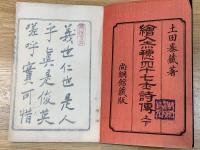 土田泰蔵著
繪入赤穂四十七士詩傳 下
尚綱館蔵版
義世仁也是人
乎真是俊英
嗟呼實可惜